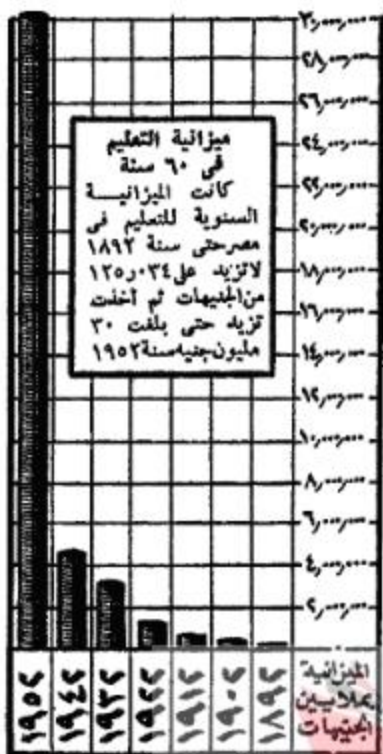 ٣٠,٠٠٠,٠٠٠
٢٨,٠٠٠,٠٠٠
٢٦,٠٠٠,٠٠٠
٢٤,٠٠٠,٠٠٠
٢٢,٠٠٠,٠٠٠
٢٠,٠٠٠,٠٠٠
١٨,٠٠٠,٠٠٠
١٦,٠٠٠,٠٠٠
١٤,٠٠٠,٠٠٠
١٢,٠٠٠,٠٠٠
١٠,٠٠٠,٠٠٠
٨,٠٠٠,٠٠٠
٦,٠٠٠,٠٠٠
٤,٠٠٠,٠٠٠
٢,٠٠٠,٠٠٠
ميزانية التعليم
فى ٦٠ سنة
كانت الميزانيـــة
السنوية للتعليم فى
مصرحتى سنة ١٨٩٢
لاتزيد على ٠٣٤ر١٢٥
من الجنيهات ثم أخذت
تزيد حتى بلغت ٣٠
مليون جنيه سنة ١٩٥٢
الميزانية
بملايين
الجنيهات
١٨٩٢
١٩٠٢
١٩١٢
١٩٢٢
١٩٣٢
١٩٤٢
١٩٥٢